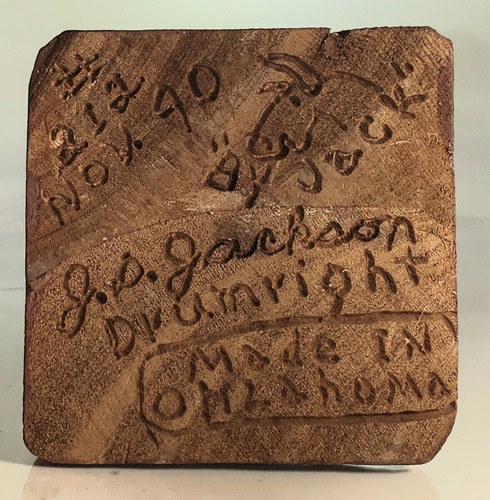 #
212
NOV. 90
"BY JACK"
J.S. Jackson
Drumright
MADE IN
OKLAHOMA